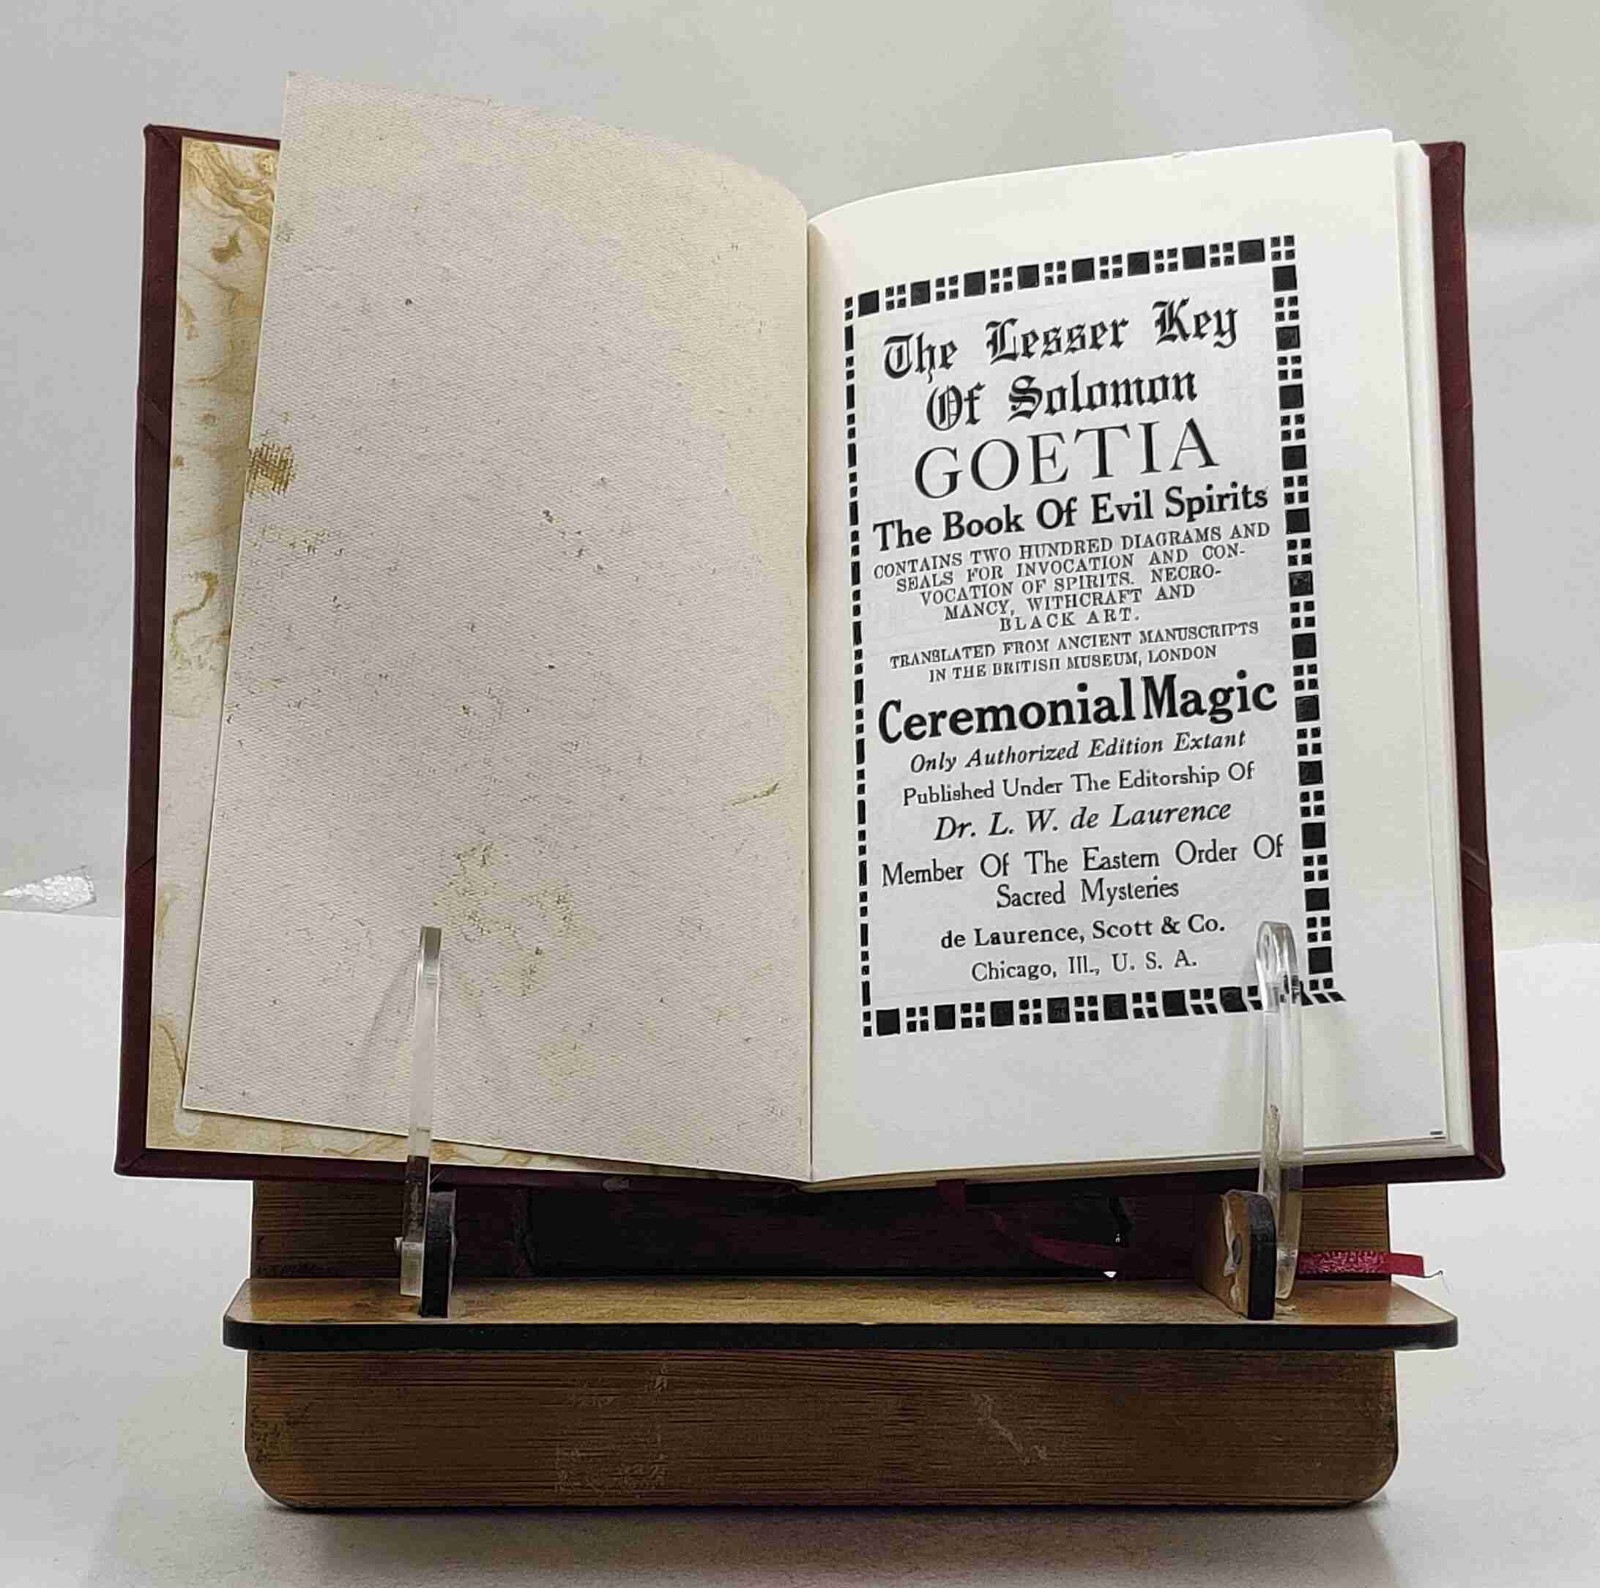 The Lesser Key
Of Solomon
GOETIA
The Book Of Evil Spirits
CONTAINS TWO HUNDRED DIAGRAMS AND
SEALS FOR INVOCATION AND CON-
VOCATION OF SPIRITS. NECRO-
MANCY, WITHCRAFT AND
BLACK ART.
TRANSLATED FROM ANCIENT MANUSCRIPTS
IN THE BRITISH MUSEUM, LONDON
Ceremonial Magic
Only Authorized Edition Extant
Published Under The Editorship Of
Dr. L. W. de Laurence
Member Of The Eastern Order Of
Sacred Mysteries
de Laurence, Scott & Co.
Chicago, Ill., U. S. A.